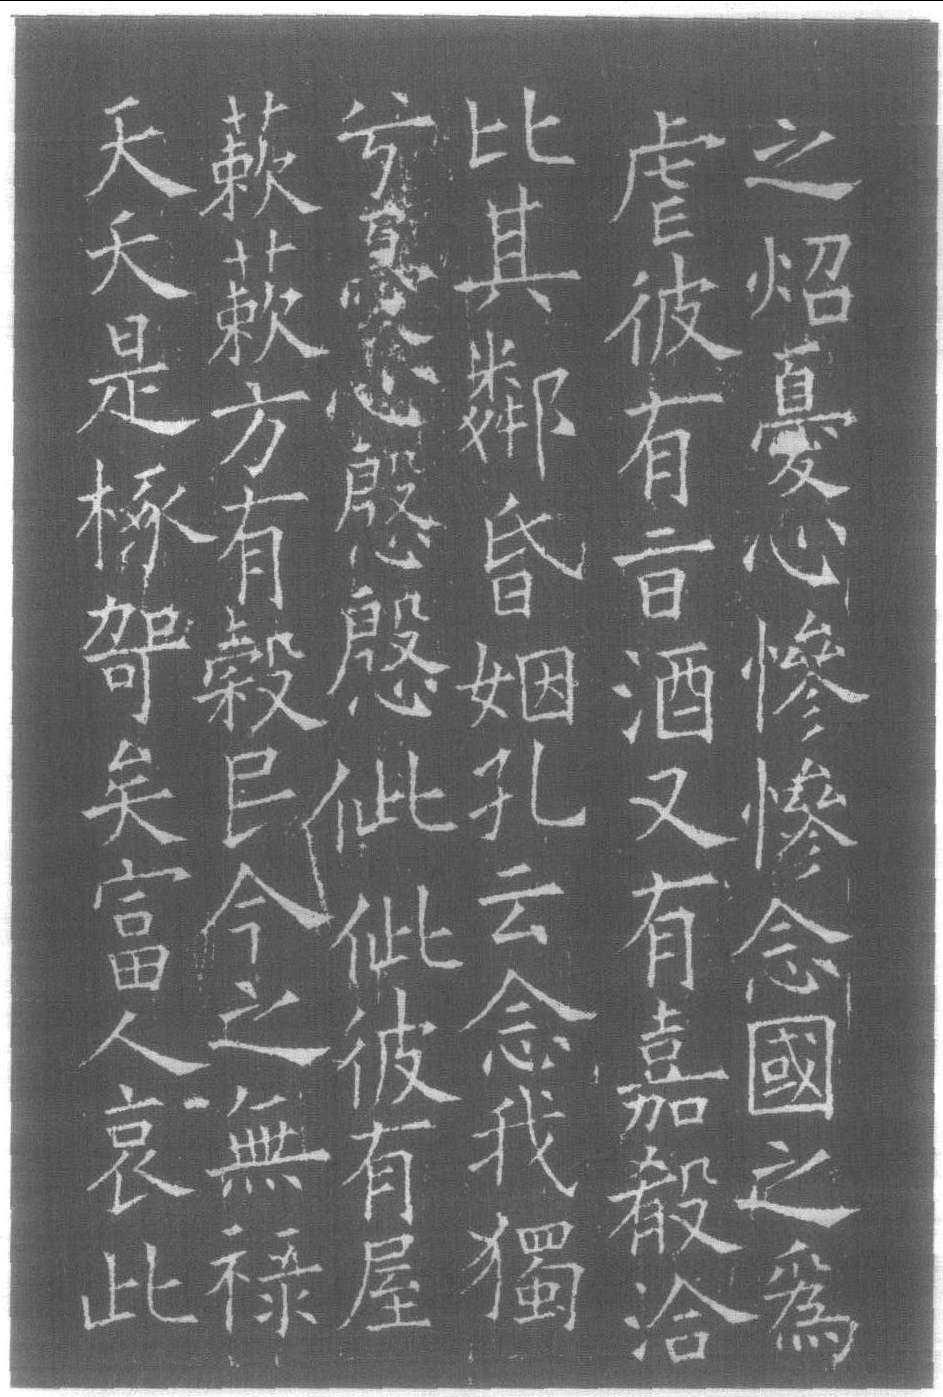 之炤憂心慘慘念國之爲
虐彼有旨酒又有嘉殽洽
比其鄰昏姻孔云念我獨
兮憂心慇慇佌佌彼有屋
蔌蔌方有穀民今之無祿
天夭是椓哿矣富人哀此